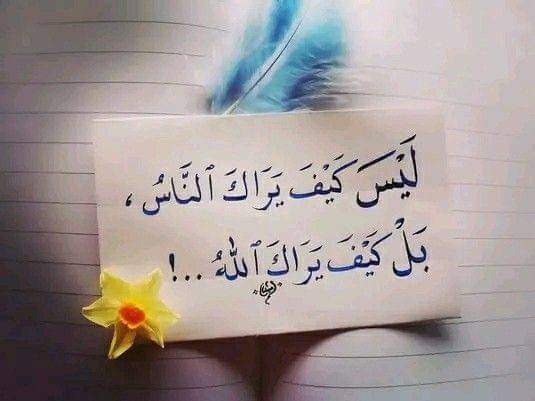 لَيْسَ كَيْفَ يَرَاكَ ٱلنَّاسُ ،
بَلْ كَيْفَ يَرَاكَ ٱللهُ ..!